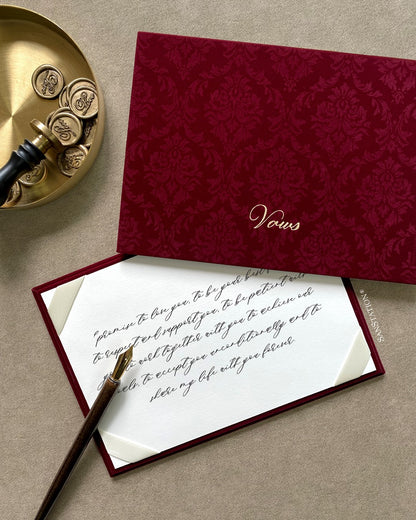 Vows
I promise to love you, to be your best
to respect and support you, to be patient with
to work together with you to achieve our
goals, to accept you unconditionally and to
share my life with you forever
SANSTATION®